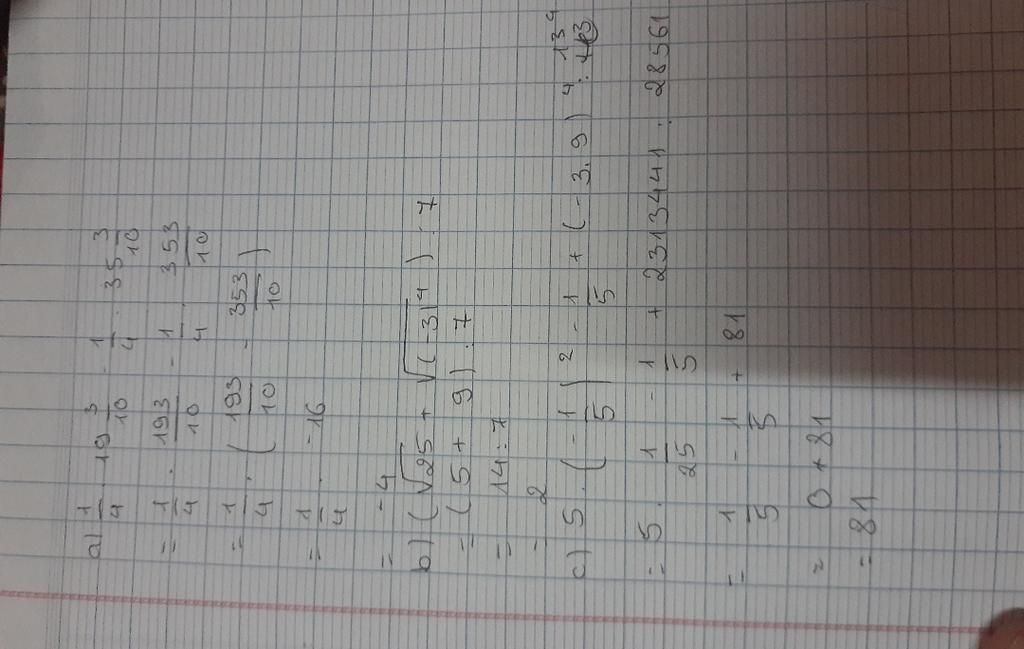 a) 1/4 . 19 3/10 - 1/4 . 35 3/10
= 1/4 . 193/10 - 1/4 . 353/10
= 1/4 . ( 193/10 - 353/10 )
= 1/4 . -16
= -4
b) ( √25 + √(-3)⁴ ) : 7
= ( 5 + 9 ) : 7
= 14 : 7
= 2
c) 5 . ( -1/5 )² - 1/5 + ( -3.9 )⁴ : 13⁴
= 5 . 1/25 - 1/5 + 2313441 : 28561
= 1/5 - 1/5 + 81
= 0 + 81
= 81